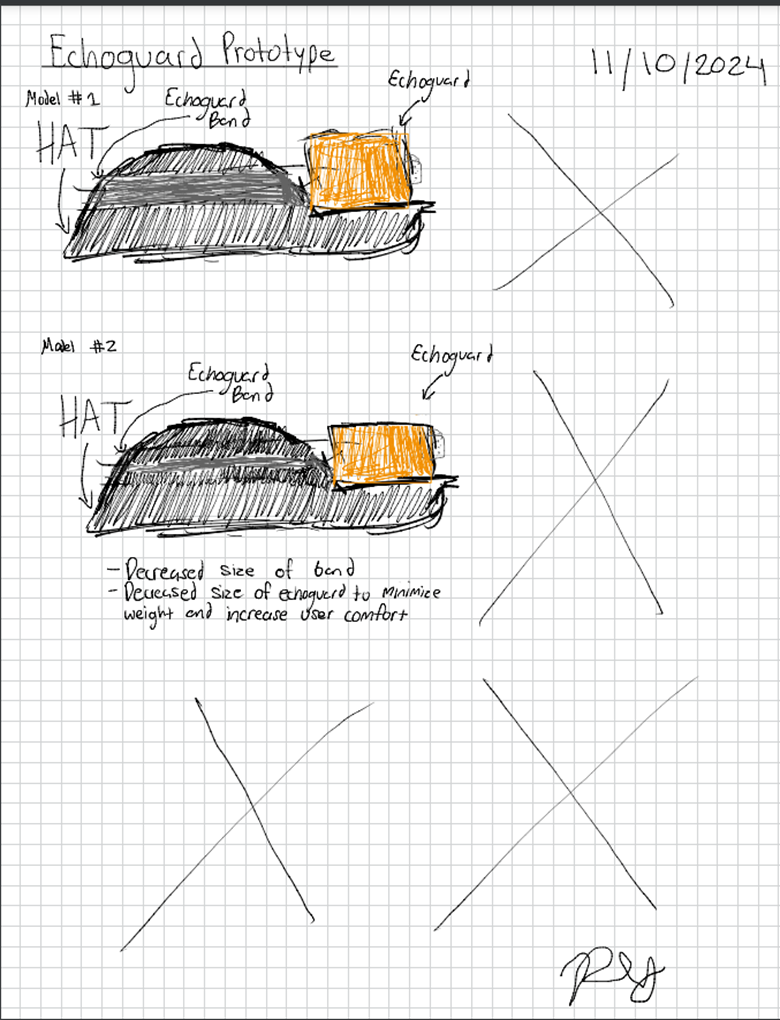 Echoguard Prototype
11/10/2024
Model #1
Echoguard
Band
Echoguard
HAT
Model #2
Echoguard
Echoguard
Band
HAT
- Decreased size of band
- Decreased size of echoguard to minimize
weight and increase user comfort